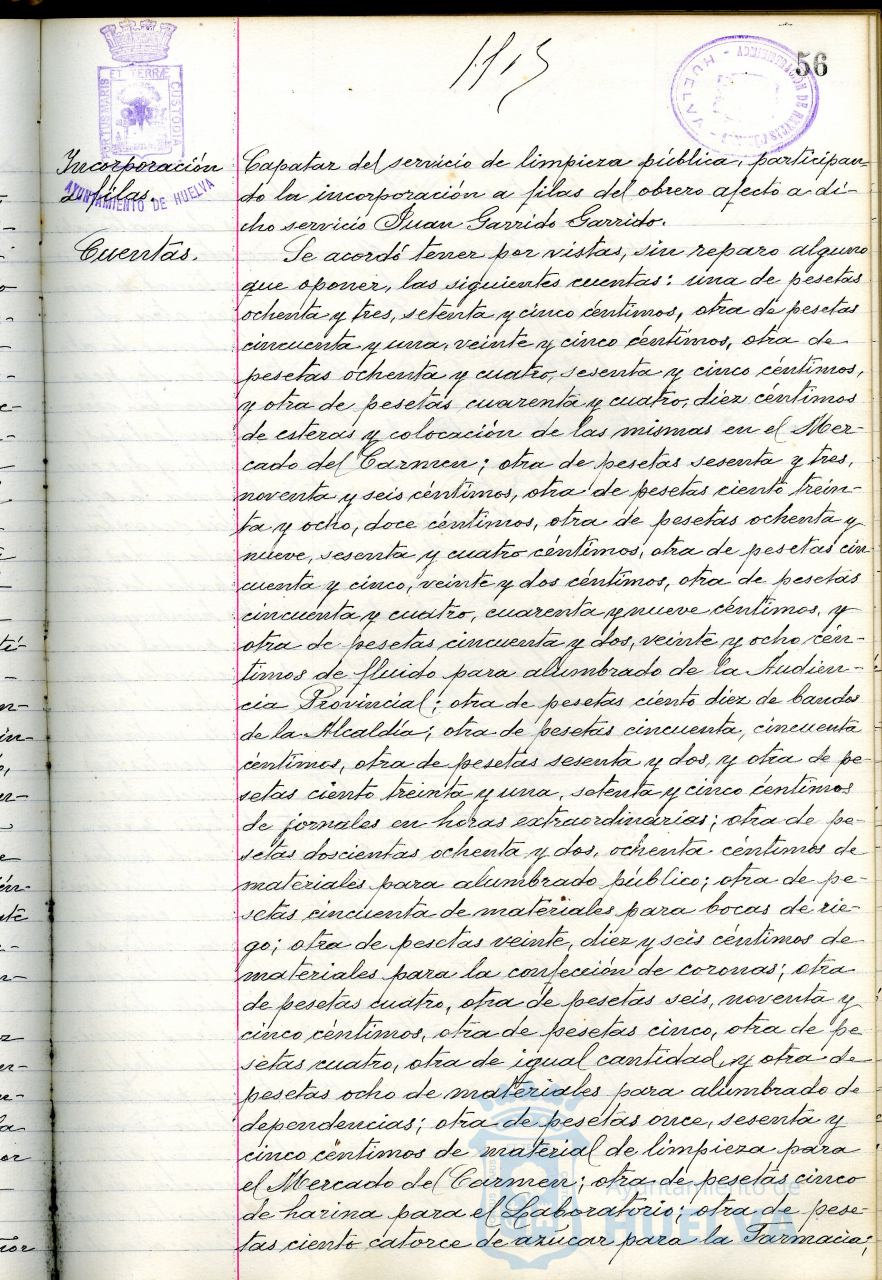 56
PORTUS MARIS ET TERRÆ CUSTODIA
AYUNTAMIENTO DE HUELVA
HUELVA
Incorporación
a filas.
Capataz del servicio de limpieza pública, participan-
do la incorporación a filas del obrero afecto a di-
cho servicio Juan Garrido Garrido.
Cuentas.
Se acordó tener por vistas, sin reparo alguno
que oponer, las siguientes cuentas: una de pesetas
ochenta y tres, setenta y cinco céntimos, otra de pesetas
cincuenta y una, veinte y cinco céntimos, otra de
pesetas ochenta y cuatro, sesenta y cinco céntimos,
y otra de pesetas cuarenta y cuatro, diez céntimos
de esteras y colocación de las mismas en el Mer-
cado del Carmen; otra de pesetas sesenta y tres,
noventa y seis céntimos, otra de pesetas ciento trein-
ta y ocho, doce céntimos, otra de pesetas ochenta y
nueve, sesenta y cuatro céntimos, otra de pesetas cin-
cuenta y cinco, veinte y dos céntimos, otra de pesetas
cincuenta y cuatro, cuarenta y nueve céntimos, y
otra de pesetas cincuenta y dos, veinte y ocho cén-
timos de fluido para alumbrado de la Audien-
cia Provincial; otra de pesetas ciento diez de bandos
de la Alcaldía; otra de pesetas cincuenta, cincuenta
céntimos, otra de pesetas sesenta y dos, y otra de pe-
setas ciento treinta y una, setenta y cinco céntimos
de jornales en horas extraordinarias; otra de pe-
setas doscientas ochenta y dos, ochenta céntimos de
materiales para alumbrado público; otra de pe-
setas cincuenta de materiales para bocas de rie-
go; otra de pesetas veinte, diez y seis céntimos de
materiales para la confección de coronas; otra
de pesetas cuatro, otra de pesetas seis, noventa y
cinco céntimos, otra de pesetas cinco, otra de pe-
setas cuatro, otra de igual cantidad, y otra de
pesetas ocho de materiales para alumbrado de
dependencias; otra de pesetas once, sesenta y
cinco céntimos de material de limpieza para
el Mercado del Carmen; otra de pesetas cinco
de harina para el Laboratorio; otra de pese-
tas ciento catorce de azúcar para la Farmacia;
Ayuntamiento de
HUELVA